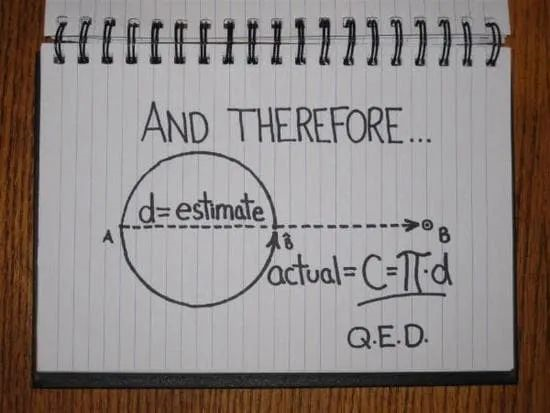 AND THEREFORE...
d=estimate
A
B̂
B
actual= C=π·d
Q.E.D.